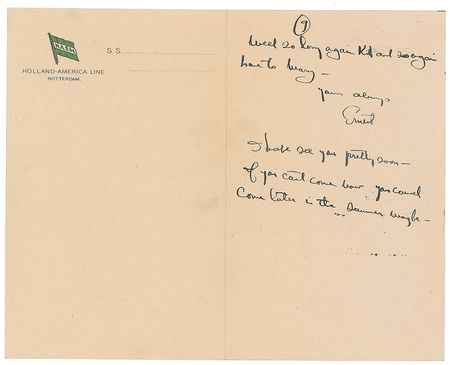 NASM
S.S.
HOLLAND-AMERICA LINE
ROTTERDAM.
(7)
Well so long again Kid and again
love to Mary —
Yours always
Ernest
I hope see you pretty soon —
If you can't come now you
come later in the Summer maybe —